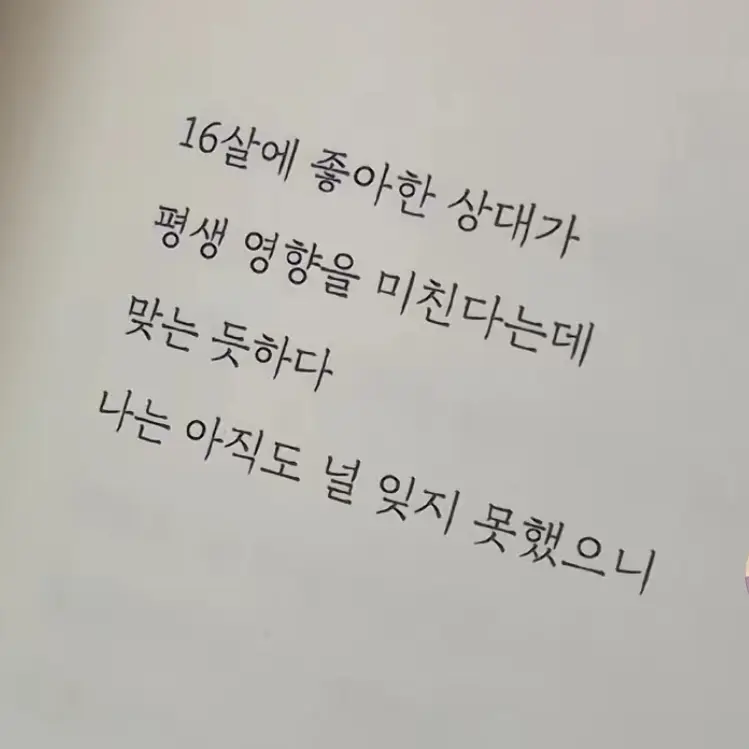 16살에 좋아한 상대가
평생 영향을 미친다는데
맞는 듯하다
나는 아직도 널 잊지 못했으니